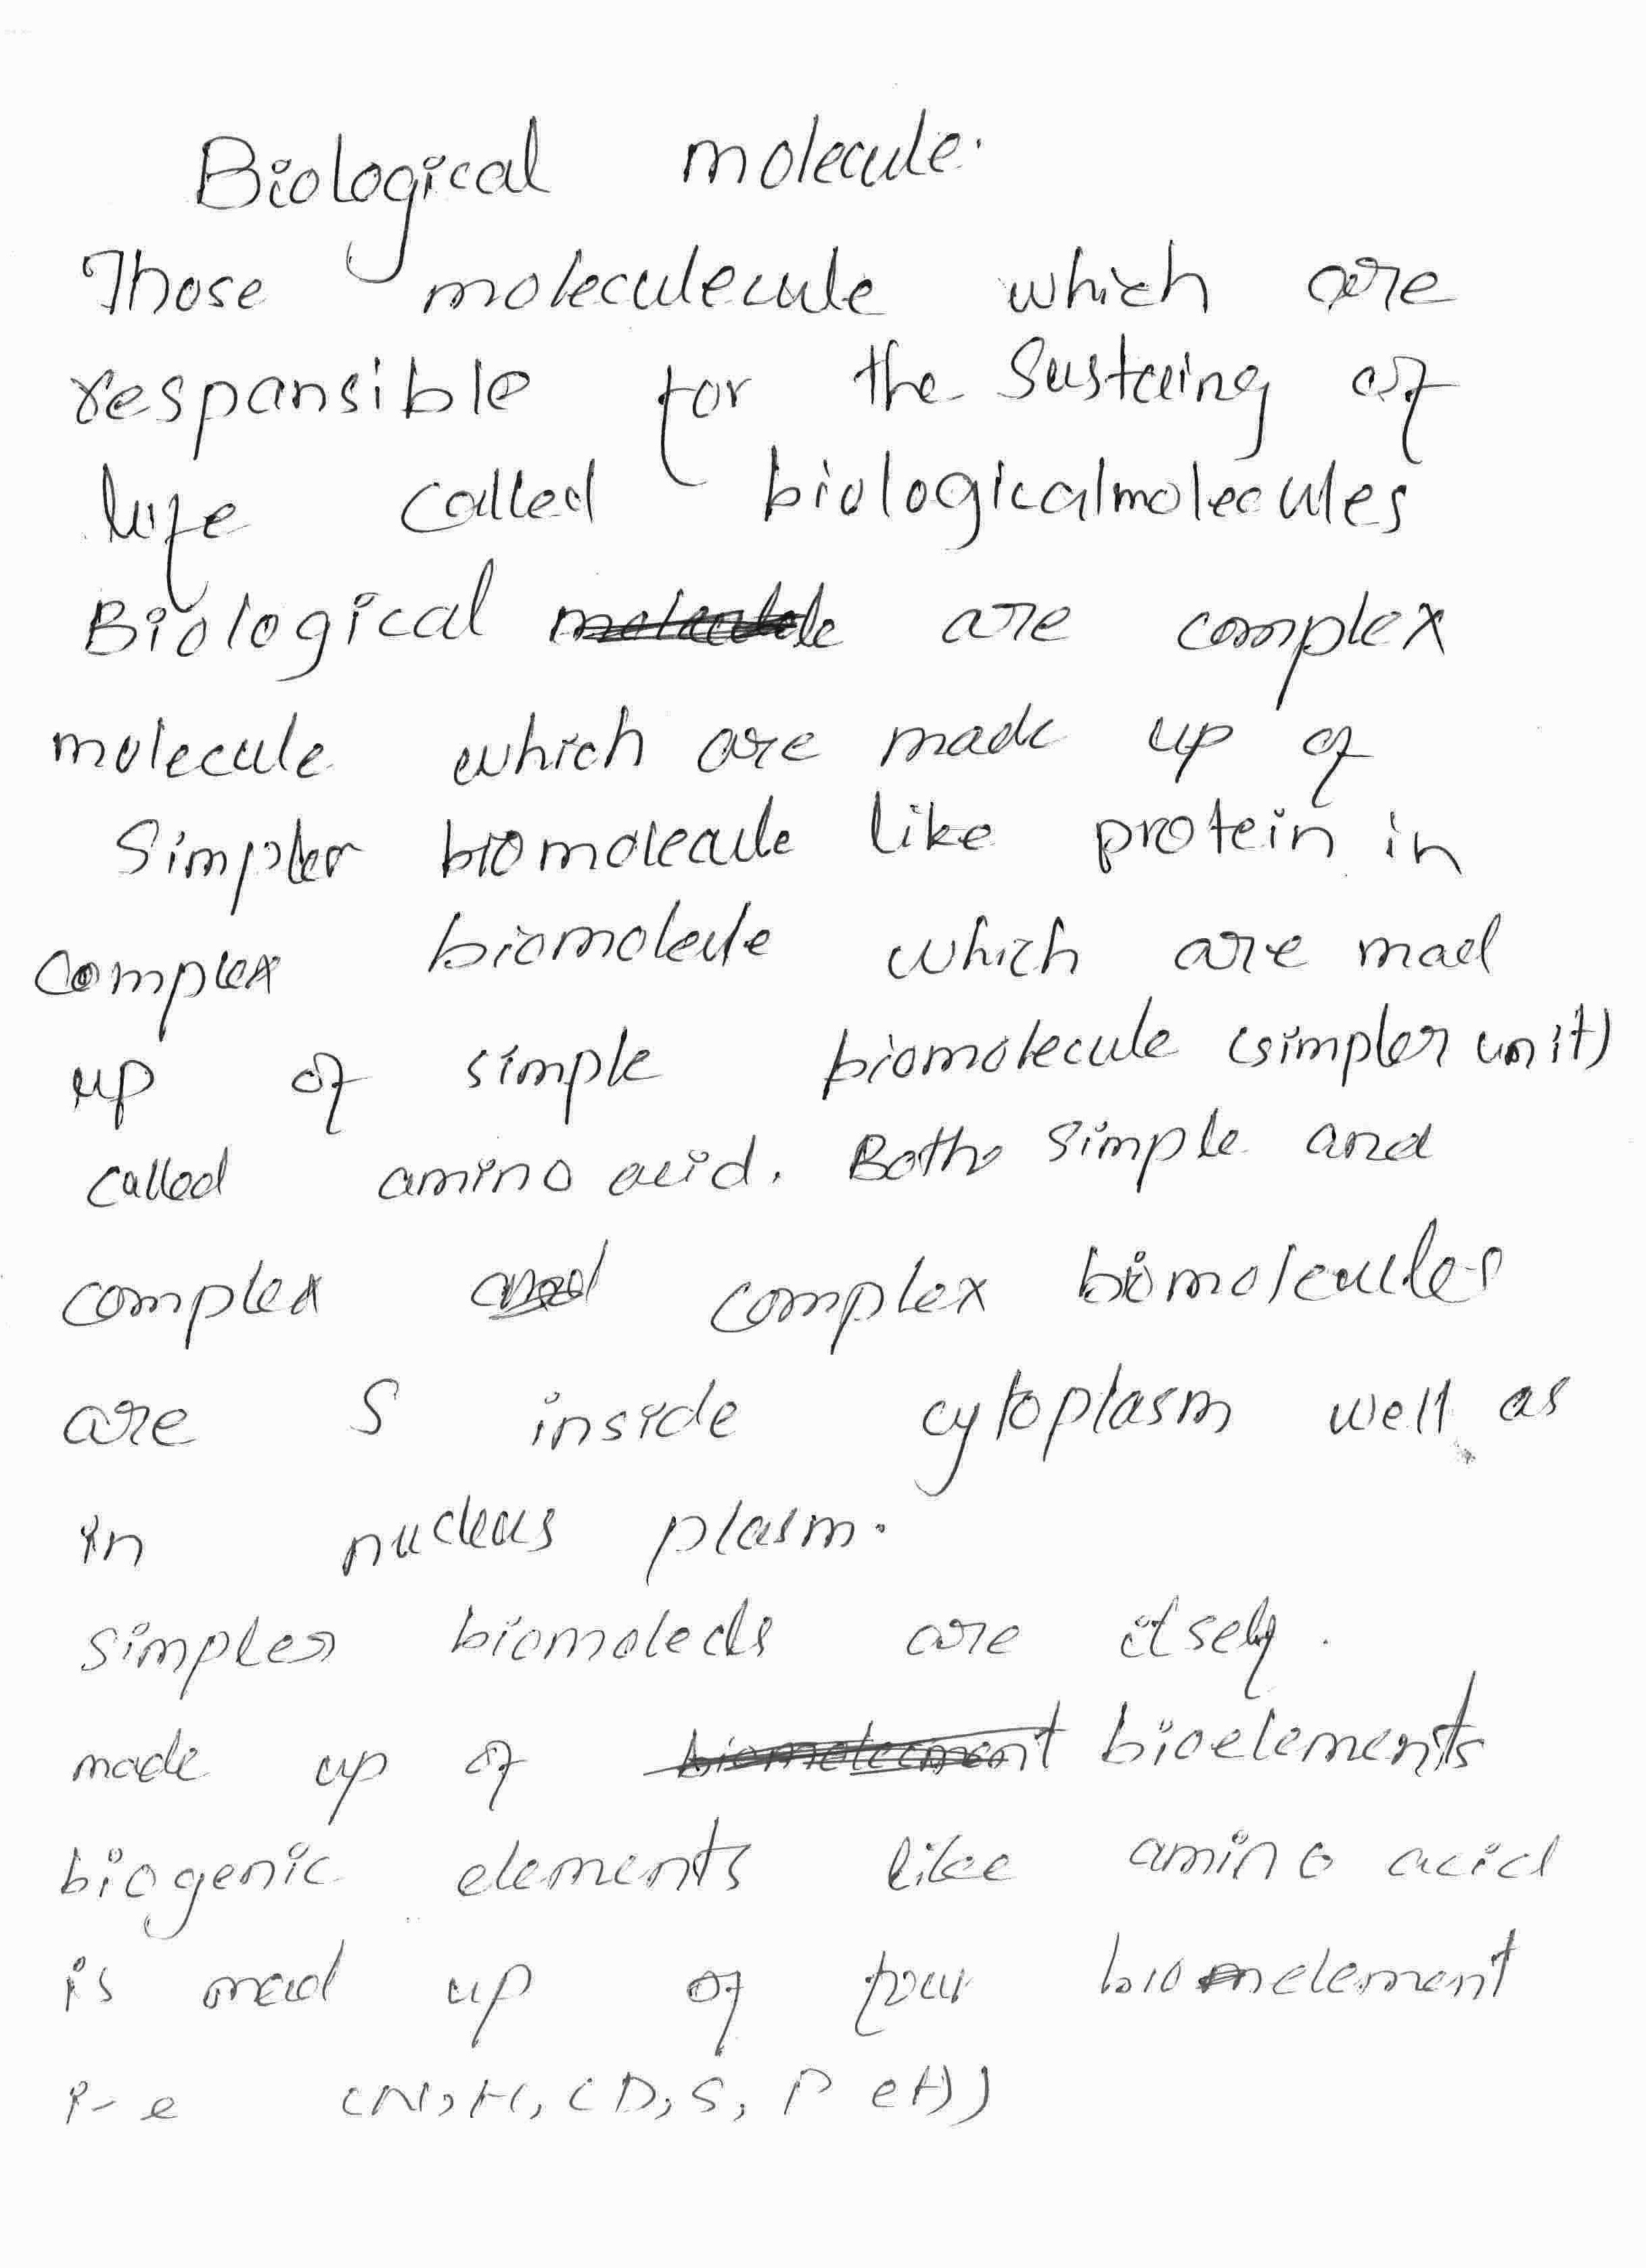 Biological molecule.
Those moleculecule which are
respansible for the Sustaing of
life called biologicalmolecules
Biological are complex
molecule which are made up of
Simpler biomolecule like protein in
complex biomolecule which are mad
up of simple biomolecule (simpler unit)
called amino acid. Both simple and
complex complex biomolecules
are S inside cytoplasm well as
in nucleus plasm.
simpler biomolecls are itself.
made up of bioelements
biogenic elements like amino acid
is mad up of four bioelement
i-e (N, H, C